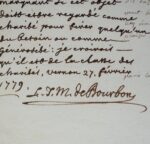 cet objet
doitt estre regardé comme
charité pour tirer quelqu'un
du besoin ou comme
générosité: je croirais
qu'il est de la classe des
charités, vernon 27. février
1779.
L. J. M. de Bourbon